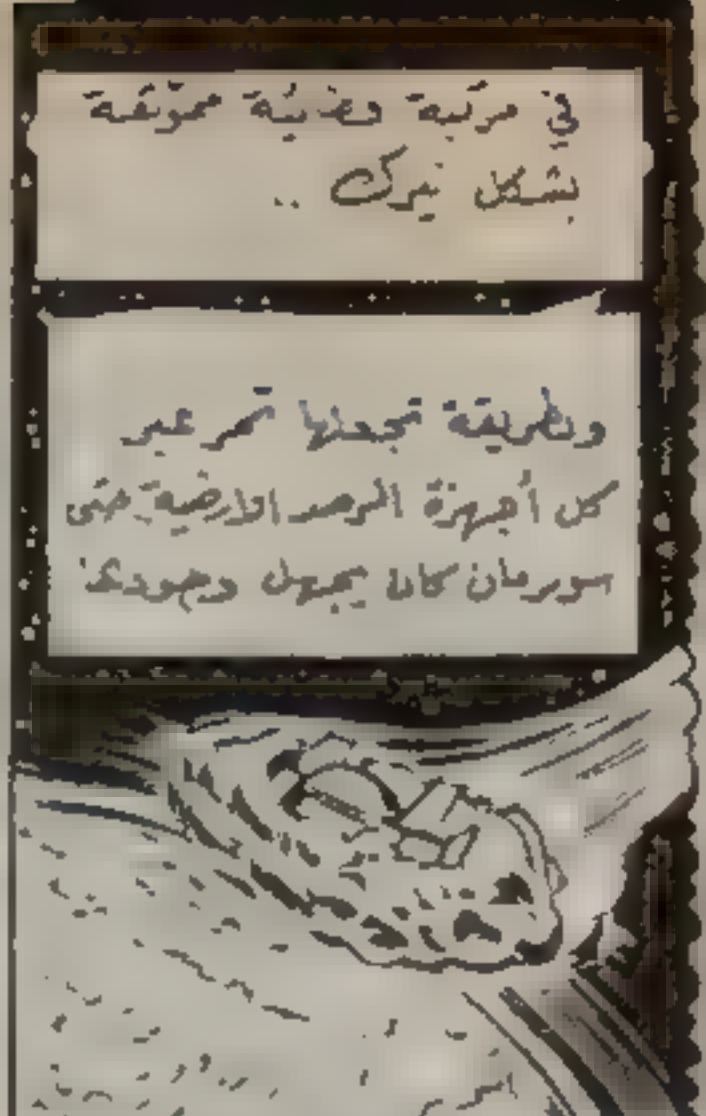 في مركبة فضائية مموّهة
بشكل نيزك ..
وبطريقة تجعلها تمر عبر
كل أجهزة الرصد الارضية حتى
سوبرمان كان يجهل وجودها